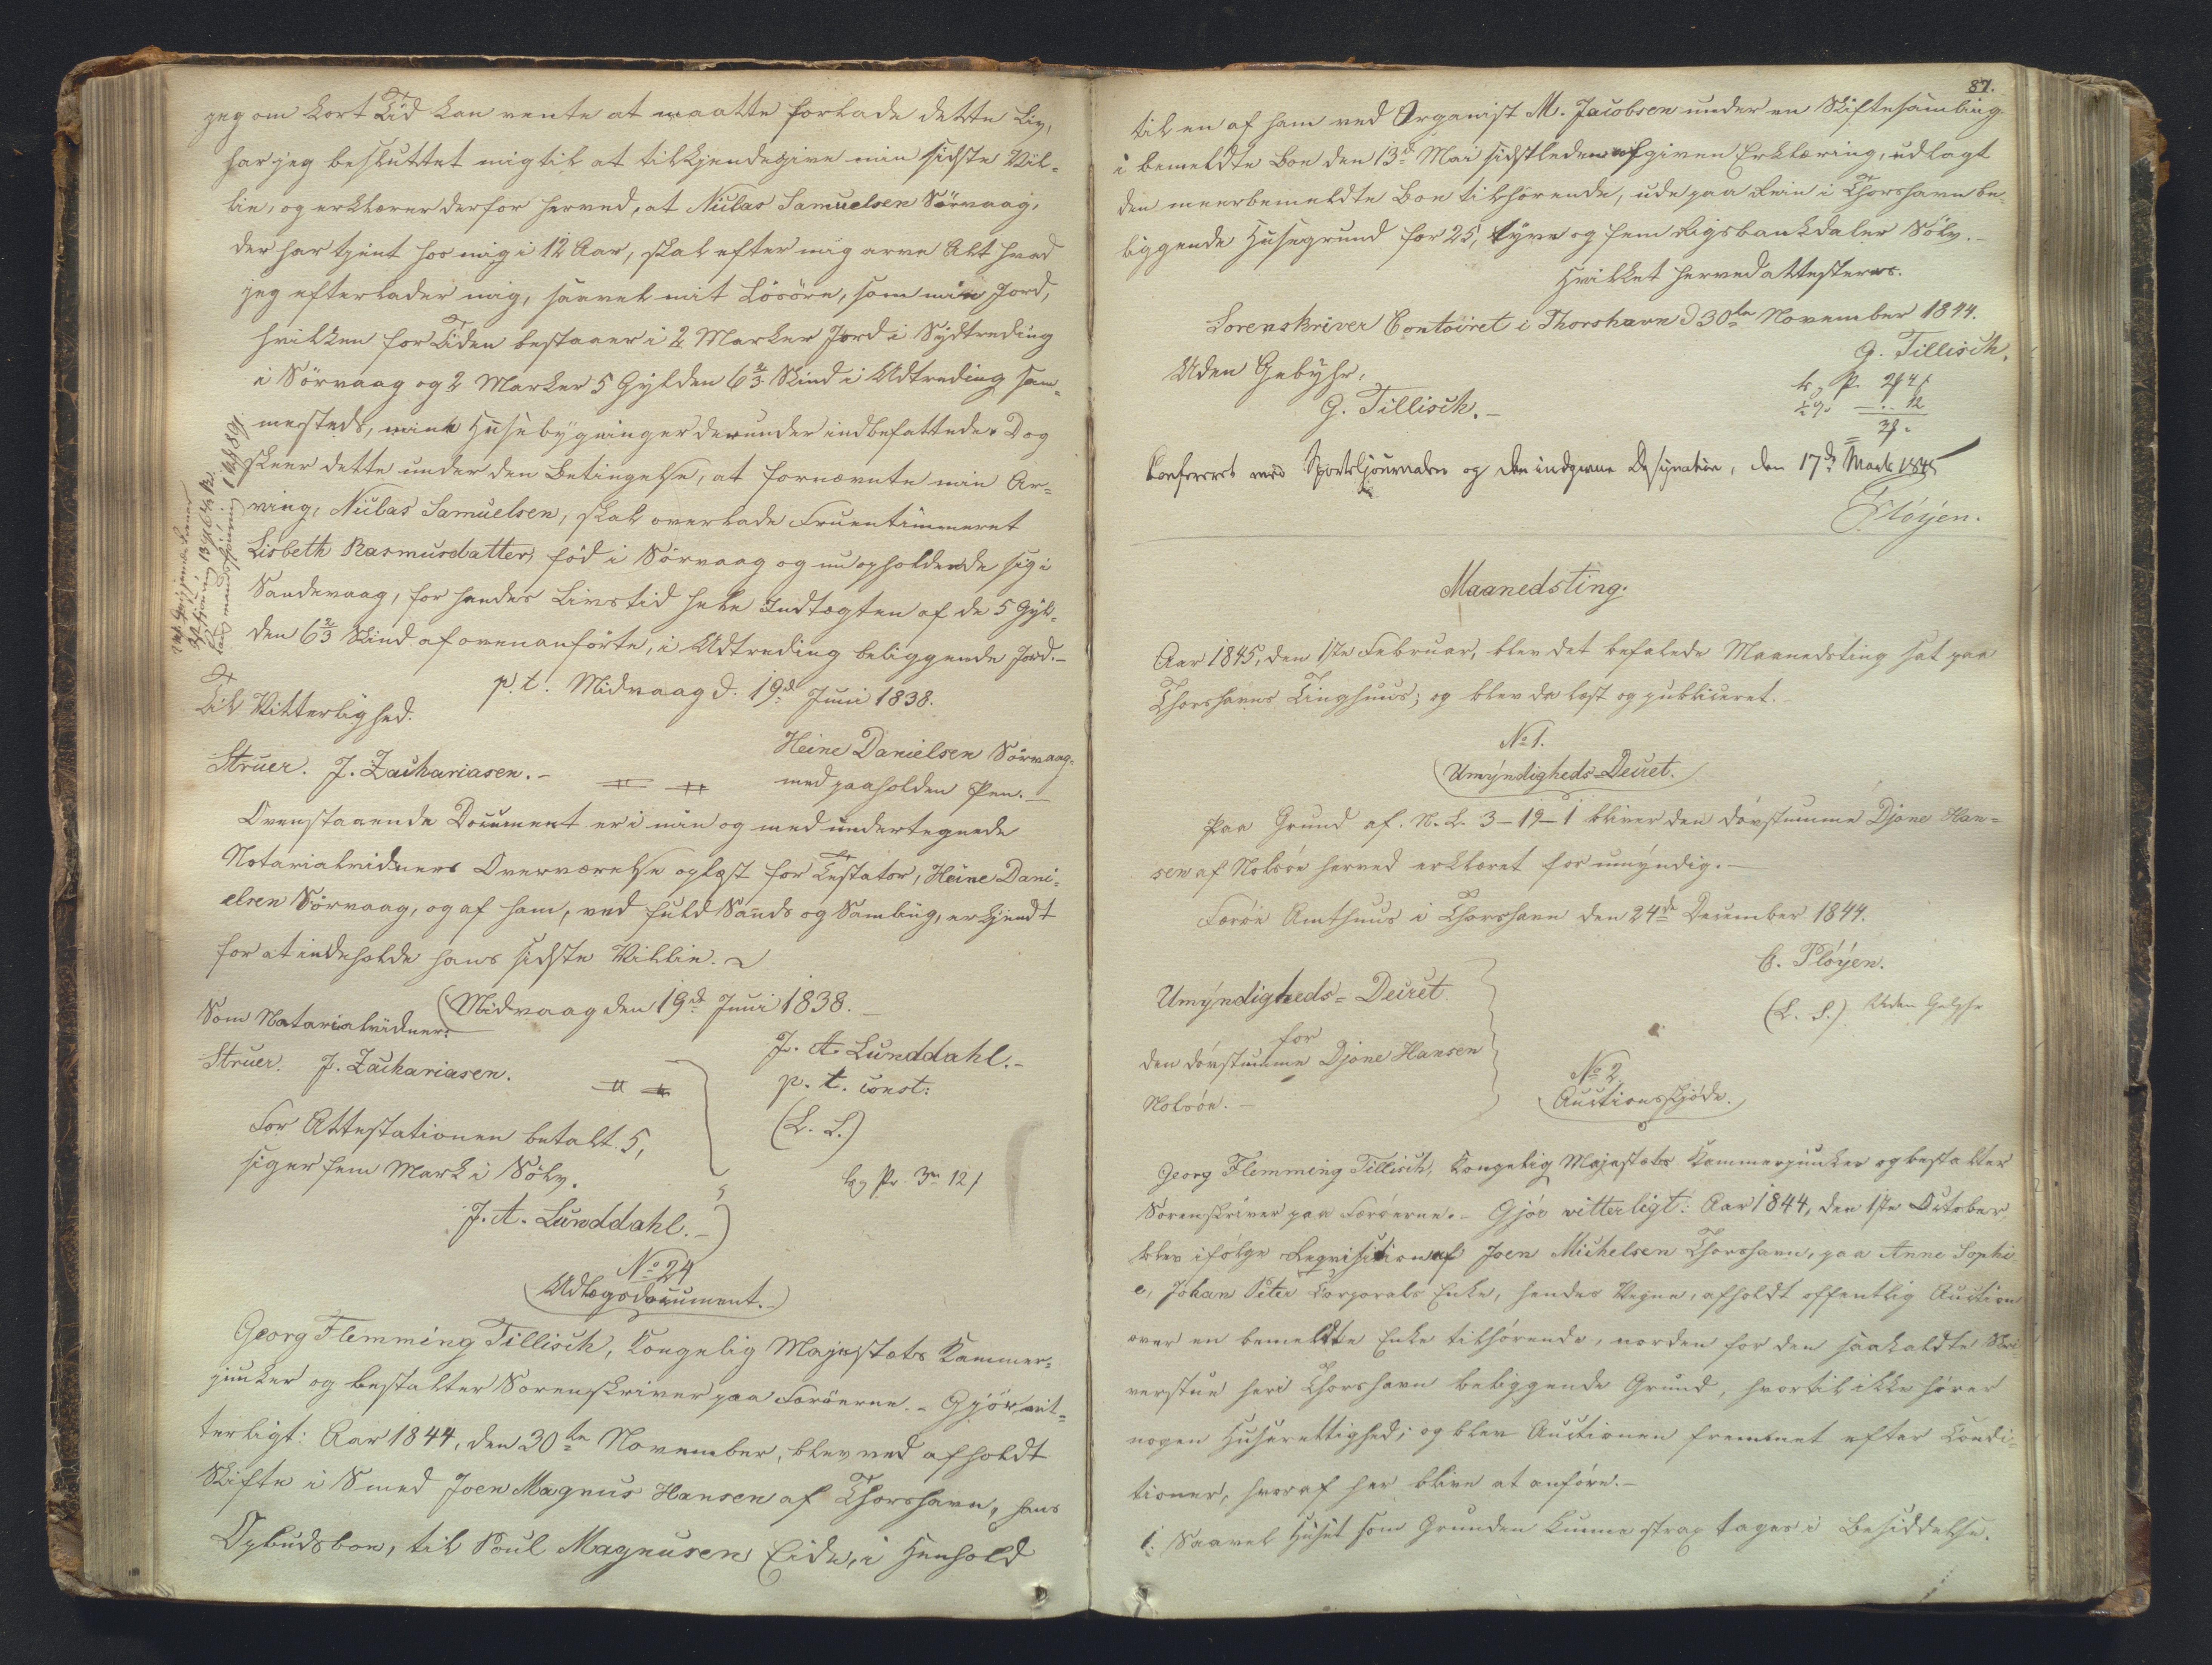 jeg om kort Tid kan vente at maatte forlade dette Liv,
har jeg besluttet mig til at tilkjendegive min sidste Vil-
lie, og erklærer derfor herved, at Niclas Samuelsen Sörvaag,
der har tjent hos mig i 12 Aar, skal efter mig arve Alt hvad
jeg efterlader mig, saavel mit Lösöre, som min Jord,
hvilken for Tiden bestaaer i 2 Marker Jord i Sydtreding
i Sörvaag og 2 Marker 5 Gylden 6 2/3 Skind i Udtreding sam-
mesteds, mine Huusebygninger derunder indbefattede. Dog
skeer dette under den Betingelse, at fornævnte min Ar-
ving, Niclas Samuelsen, skal overlade Fruentimmeret
Lisbeth Rasmusdatter, föd i Sörvaag og nu opholdende sig i
Sandevaag, for hendes Livstid hele Indtægten af de 5 Gyl-
den 6 2/3 Skind af ovenanförte, i Udtreding beliggende Jord.-
p. t. Midvaag d. 19d Juni 1838.
Til Vitterlighed.
Heine Danielsen Sörvaag.
Struer. J. Zachariasen.-
med paaholden Pen.-
Ovenstaaende Document er i min og med undertegnede
Notarialvidners Overværelse oplæst for Testator, Heine Dani-
elsen Sörvaag, og af ham, ved fuld Sands og Samling, erkjendt
for at indeholde hans sidste Villie.
Midvaag den 19d Juni 1838.-
Som Notarialvidner:
J. A. Lunddahl.-
Struer. J. Zachariasen.
p. t. const:
(L. S.)
For Attestationen betalt 5,
siger fem Mark i Sölv.
J. A. Lunddahl.-
No 24
Udlægsdocument.-
Georg Flemming Tillisch, Kongelig Majestæts Kammer-
junker og bestalter Sorenskriver paa Færöerne.- Gjör vit-
terligt: Aar 1844, den 30te November, blev ved afholdt
Skifte i Smed Joen Magnus Hansen af Thorshavn, hans
Opbudsboe, til Poul Magnusen Eide, i Henhold
87.
til en af ham ved Organist M. Jacobsen under en Skiftesamling
i bemeldte Boe den 13d Mai sidstleden afgiven Erklæring, udlagt
den meerbemeldte Boe tilhörende, ude paa Rein i Thorshavn be-
liggende Huusegrund for 25, tyve og fem Rigsbankdaler Sölv.-
Hvilket herved attesteres.
Sorenskriver Contoiret i Thorshavn d 30te November 1844.
G. Tillisch.
Uden Gebyhr,
G. Tillisch.-
Confereret med Sporteljournalen og den indgivne Designation, den 17d Marts 1845
Plöyen.
Maanedsting.
Aar 1845, den 1ste Februar, blev det befalede Maanedsting sat paa
Thorshavns Tinghuus; og blev da læst og publiceret.-
No 1.
Umyndigheds-Decret.
Paa Grund af N. L. 3-19-1 bliver den dövstumme Djone Han-
sen af Nolsöe herved erklæret for umyndig.-
Færöe Amthuus i Thorshavn den 24de December 1844.
C. Plöyen.
(L. S.) Uden Gebyhr
Umyndigheds-Decret
for
den dövstumme Djone Hansen
Nolsöe.-
No 2
Auctionsskjöde.
Georg Flemming Tillisch, Kongelig Majestæts Kammerjunker og bestalter
Sorenskriver paa Færöerne.- Gjör vitterligt: Aar 1844, den 1ste October,
blev ifölge Reqvisition af Joen Michelsen Thorshavn, paa Anne Sophi
e, Johan Peter Corporals Enke, hendes Vegne, afholdt offentlig Auction
over en bemeldte Enke tilhörende, norden for den saakaldte Skri-
verstue her i Thorshavn beliggende Grund, hvortil ikke hörer
nogen Huusrettighed; og blev Auctionen fremmet efter Condi-
tioner, hvoraf her blive at anföre.-
1. Saavel Huset som Grunden kunne strax tages i Besiddelse.